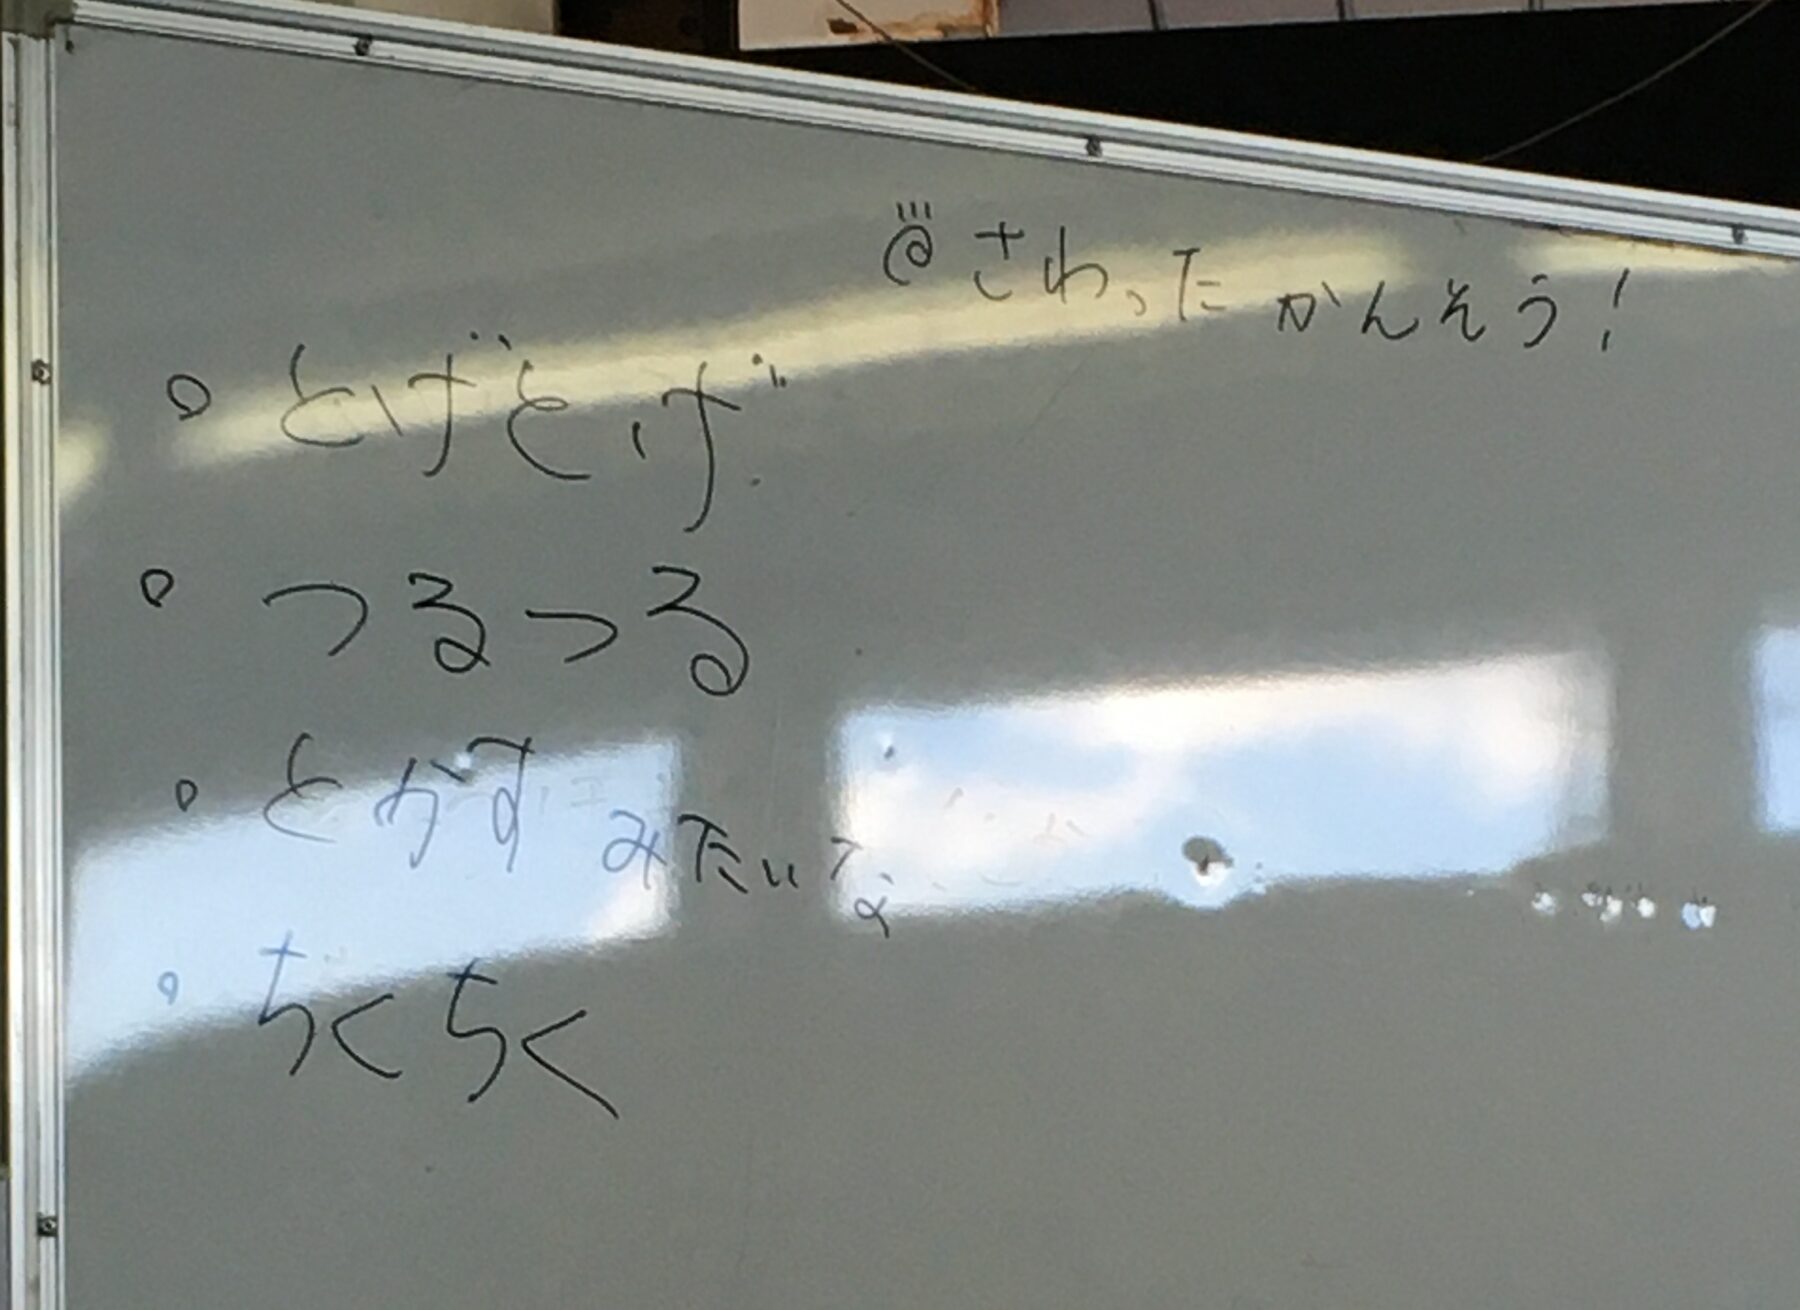 さわったかんそう!
・とげとげ
・つるつる
・とかすみたいな
・ちくちく